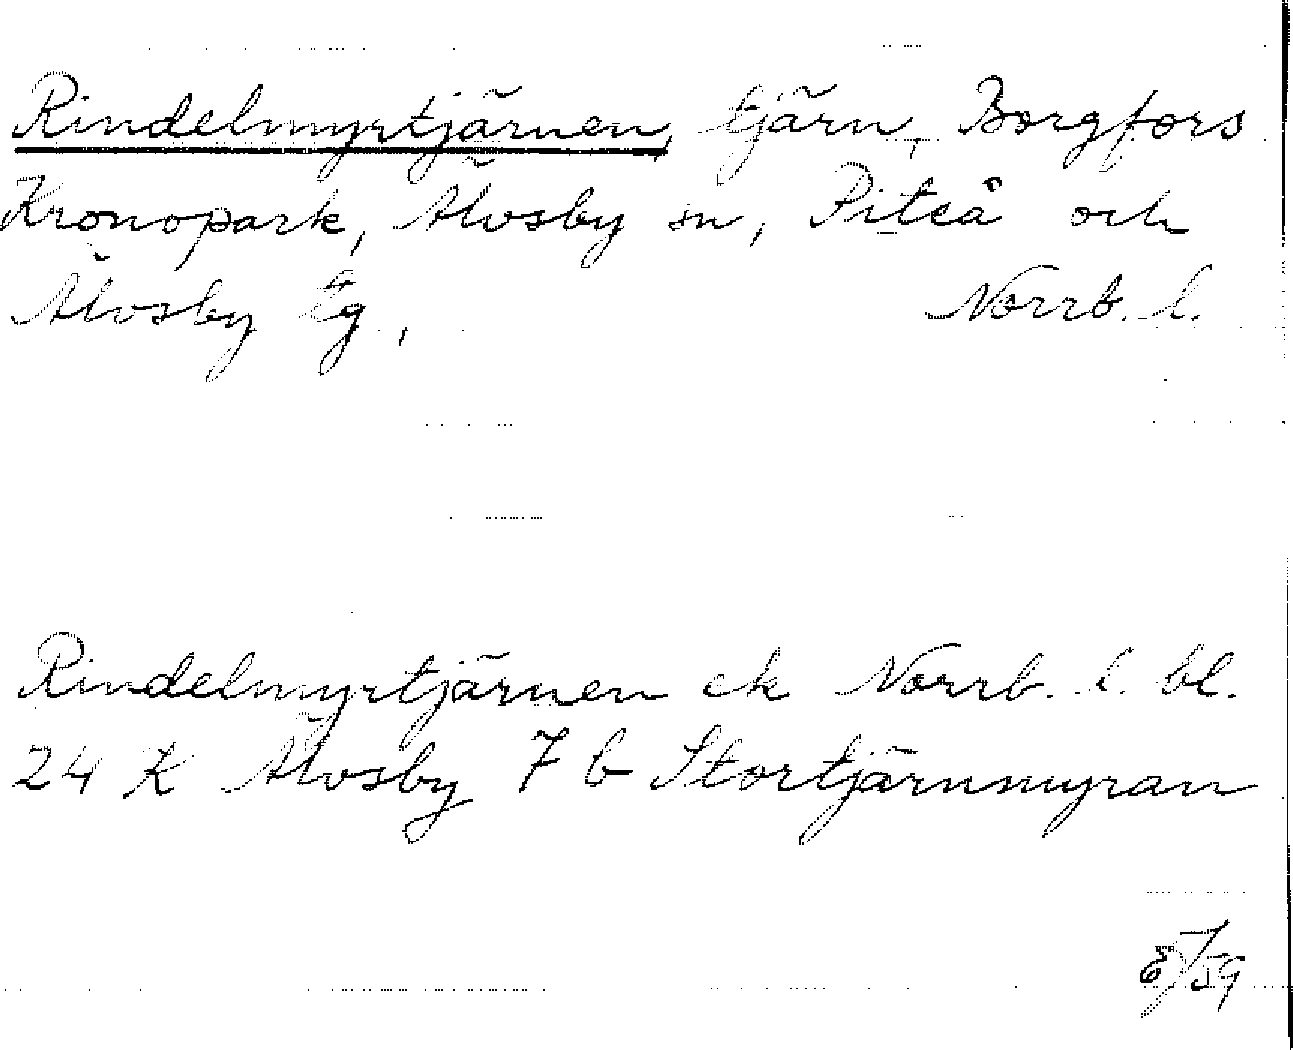 Rindelmyrtjärnen, tjärn, Borgfors
Kronopark, Älvsby sn, Piteå och
Älvsby tg, Norrb. l.
Rindelmyrtjärnen ek Norrb. l. bl.
24 K Älvsby 7 b Stortjärnmyran